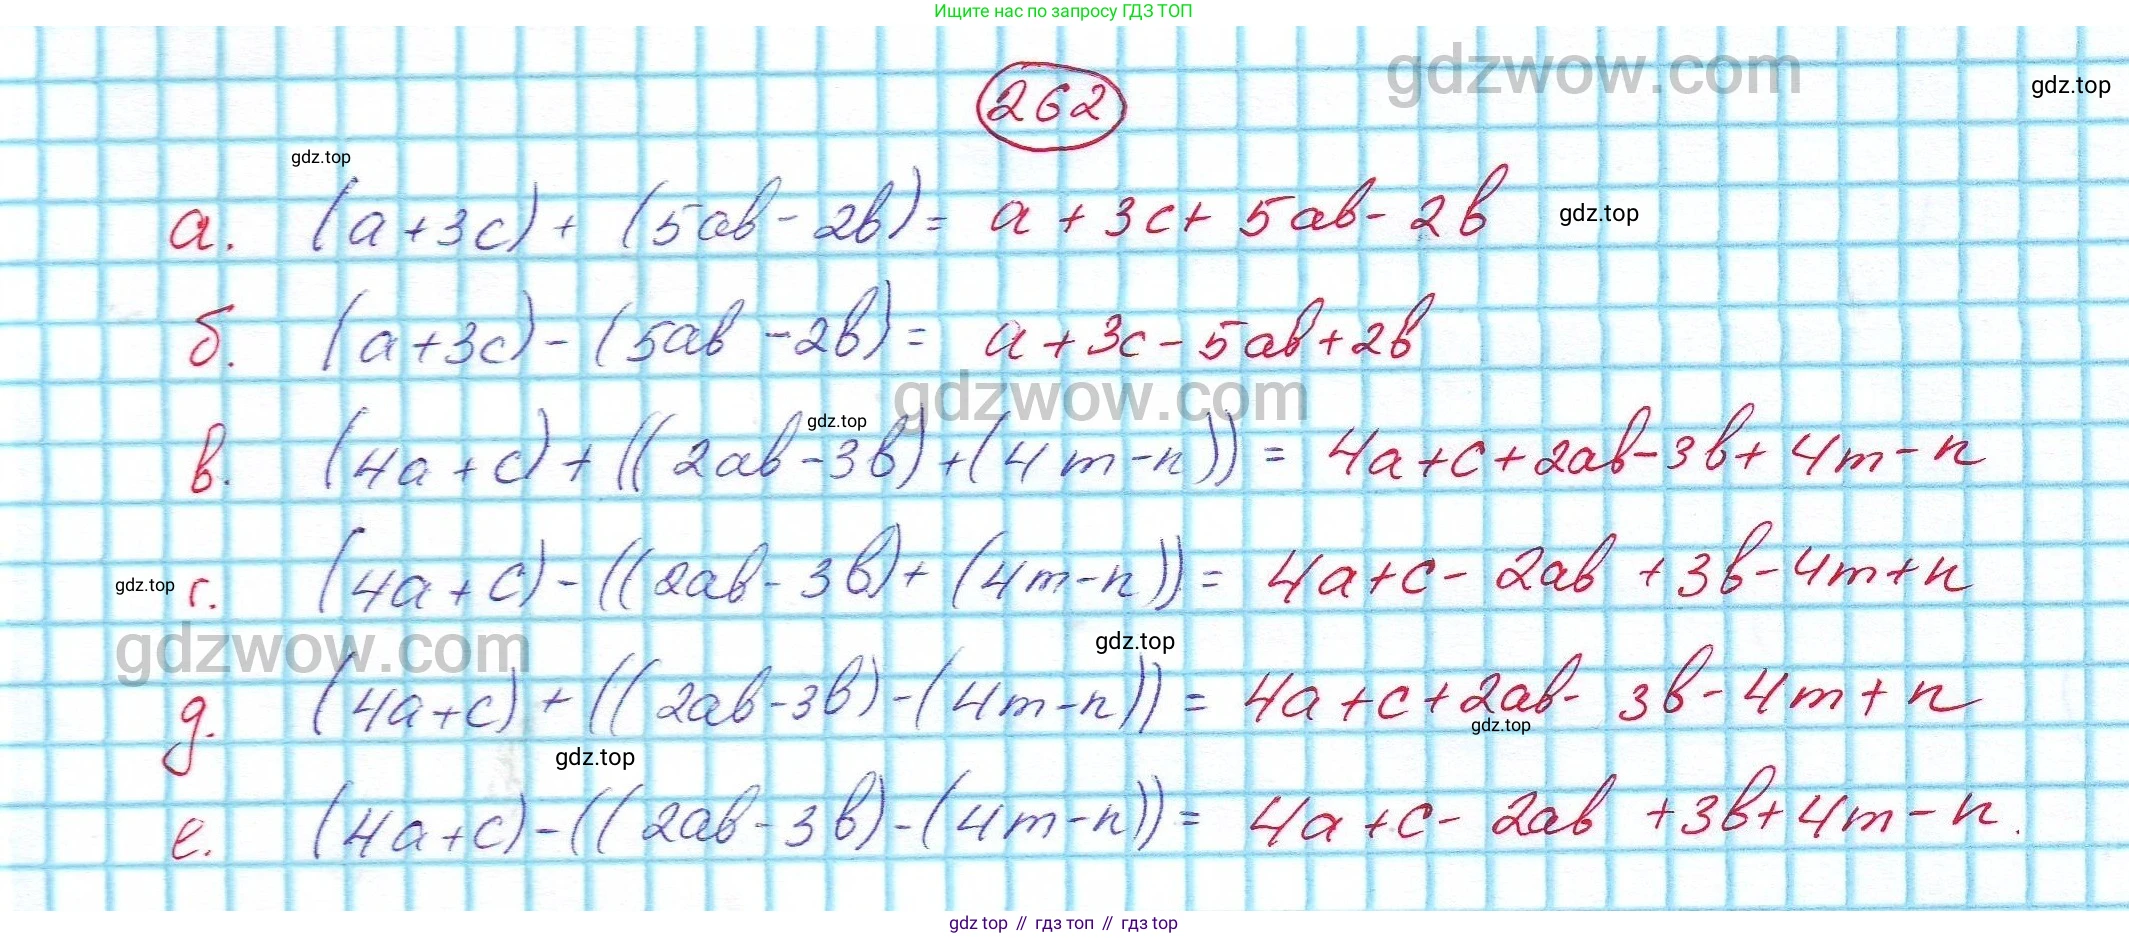 Ищите нас по запросу ГДЗ ТОП
gdzwow.com
gdz.top
262
gdz.top
а. (a+3c)+(5ab-2b)= a+3c+5ab-2b gdz.top
б. (a+3c)-(5ab-2b)= a+3c-5ab+2b
gdzwow.com
gdz.top
в. (4a+c)+((2ab-3b)+(4m-n))= 4a+c+2ab-3b+4m-n
gdz.top г. (4a+c)-((2ab-3b)+(4m-n))= 4a+c-2ab+3b-4m+n
gdzwow.com
gdz.top
д. (4a+c)+((2ab-3b)-(4m-n))= 4a+c+2ab-3b-4m+n
gdz.top
gdz.top
е. (4a+c)-((2ab-3b)-(4m-n))= 4a+c-2ab+3b+4m-n.
gdz top // гдз топ // гдз top